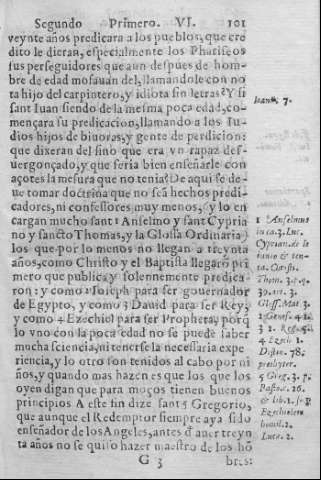 Segundo Primero. VI. 101
veynte años predicara a los pueblos, que cre
dito le dieran, especialmente los Phariseos
sus perseguidores que aun despues de hom-
bre de edad mofauan del, llamandole con no
ta hijo del carpintero, y idiota sin letras? Y si
sant Iuan siendo de la mesma poca edad, co-
mençara su predicacion, llamando a los Iu-
dios hijos de biuoras, y gente de perdicion:
que dixeran del sino que era vn rapaz des-
uergonçado, y que seria bien enseñarle con
açotes la mesura que no tenia? De aqui se de-
ue tomar doctrina que no seã hechos predi-
cadores, ni confessores muy menos, y lo en
cargan mucho sant 1 Anselmo y sant Cypria
no y sancto Thomas, y la Glossa Ordinaria,
los que por lo menos no llegan a treynta
años, como Christo y el Baptista llegarõ pri
mero que publica y solennemente predica-
ron: y como 2 Ioseph para ser gouernador
de Egypto, y como 3 Dauid para ser Rey,
y como 4 Ezechiel para ser Propheta, porq̃
lo vno con la poca edad no se puede saber
mucha sciencia, ni tenerse la necessaria expe-
riencia, y lo otro son tenidos al cabo por ni
ños, y quando mas hazen es que los que los
oyen digan que para moços tienen buenos
principios A este fin dize sant 5 Gregorio,
que aunque el Redemptor siempre aya sido
enseñador de los Angeles, antes q̃ auer treyn
ta años no se quiso hazer maestro de los hõ
G 3 bres:
Ioann. 7.
1 Anselmus
in ca. 3. Luc.
Cyprian. de
Christi.
Thom. 3. p. q.
39. art. 3.
Gloss. Mat. 3.
2 Genes. 41.
4 Ezech. 1.
Distin. 78.
presbyter.
5 Greg. 3. p.
Pastor. 26.
Ezechielem
homil. 2.
Lucæ. 2.